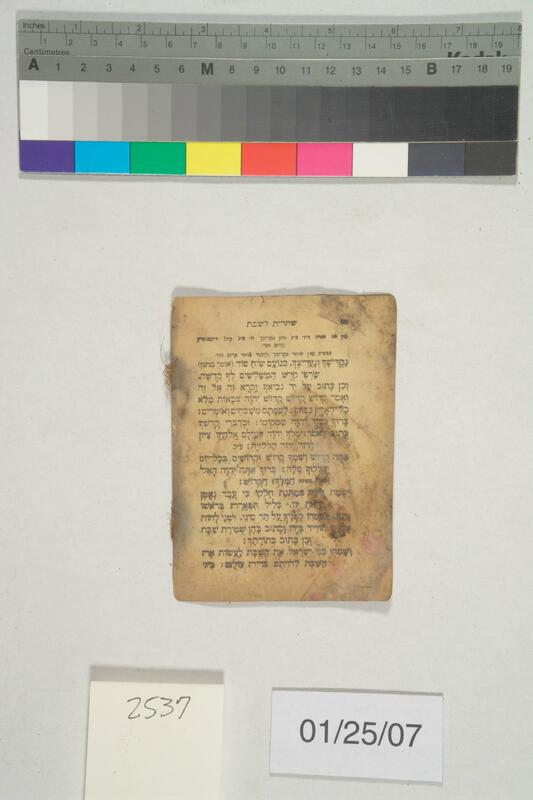 Inches 1 2 3 4 5 6 7
Centimetres 1 2 3 4 5 6 7 8 9 10 11 12 13 14 15 16 17 18 19
Kodak
A 1 2 3 4 5 6 M 8 9 10 11 12 13 14 15 B 17 18 19
שחרית לשבת
נַקְדִּישָׁךְ וְנַעֲרִיצָךְ, כְּנוֹעַם שִׂיחַ סוֹד
שַׂרְפֵי קֹדֶשׁ הַמְשַׁלְּשִׁים לְךָ קְדֻשָּׁה,
וְכֵן כָּתוּב עַל יַד נְבִיאָךְ וְקָרָא זֶה אֶל זֶה
וְאָמַר קָדוֹשׁ קָדוֹשׁ קָדוֹשׁ יְהֹוָה צְבָאוֹת מְלֹא
לְעֻמָּתָם מְשַׁבְּחִים וְאוֹמְרִים:
בָּרוּךְ יְהֹוָה מִמְּקוֹמוֹ: וּבְדִבְרֵי קָדְשָׁךְ
כָּתוּב יִמְלֹךְ יְהֹוָה לְעוֹלָם אֱלֹהַיִךְ צִיּוֹן
לְדוֹר וָדוֹר הַלְלוּיָהּ:
אַתָּה קָדוֹשׁ וְשִׁמְךָ קָדוֹשׁ וּקְדוֹשִׁים בְּכָל יוֹם
סֶּלָה: בָּרוּךְ אַתָּה יְהֹוָה הָאֵל
הַקָּדוֹשׁ:
יִשְׂמַח בְּמַתְּנַת חֶלְקוֹ כִּי עֶבֶד נֶאֱמָן
כְּלִיל תִּפְאֶרֶת בְּרֹאשׁוֹ
עַל הַר סִינַי, וּשְׁנֵי לֻחוֹת
הוֹרִיד בְּיָדוֹ וְכָתוּב בָּהֶן שְׁמִירַת שַׁבָּת
וְכֵן כָּתוּב בְּתוֹרָתֶךָ:
וְשָׁמְרוּ בְנֵי יִשְׂרָאֵל אֶת הַשַּׁבָּת לַעֲשׂוֹת אֶת
הַשַּׁבָּת לְדֹרֹתָם בְּרִית עוֹלָם: בֵּינִי
2537
01/25/07